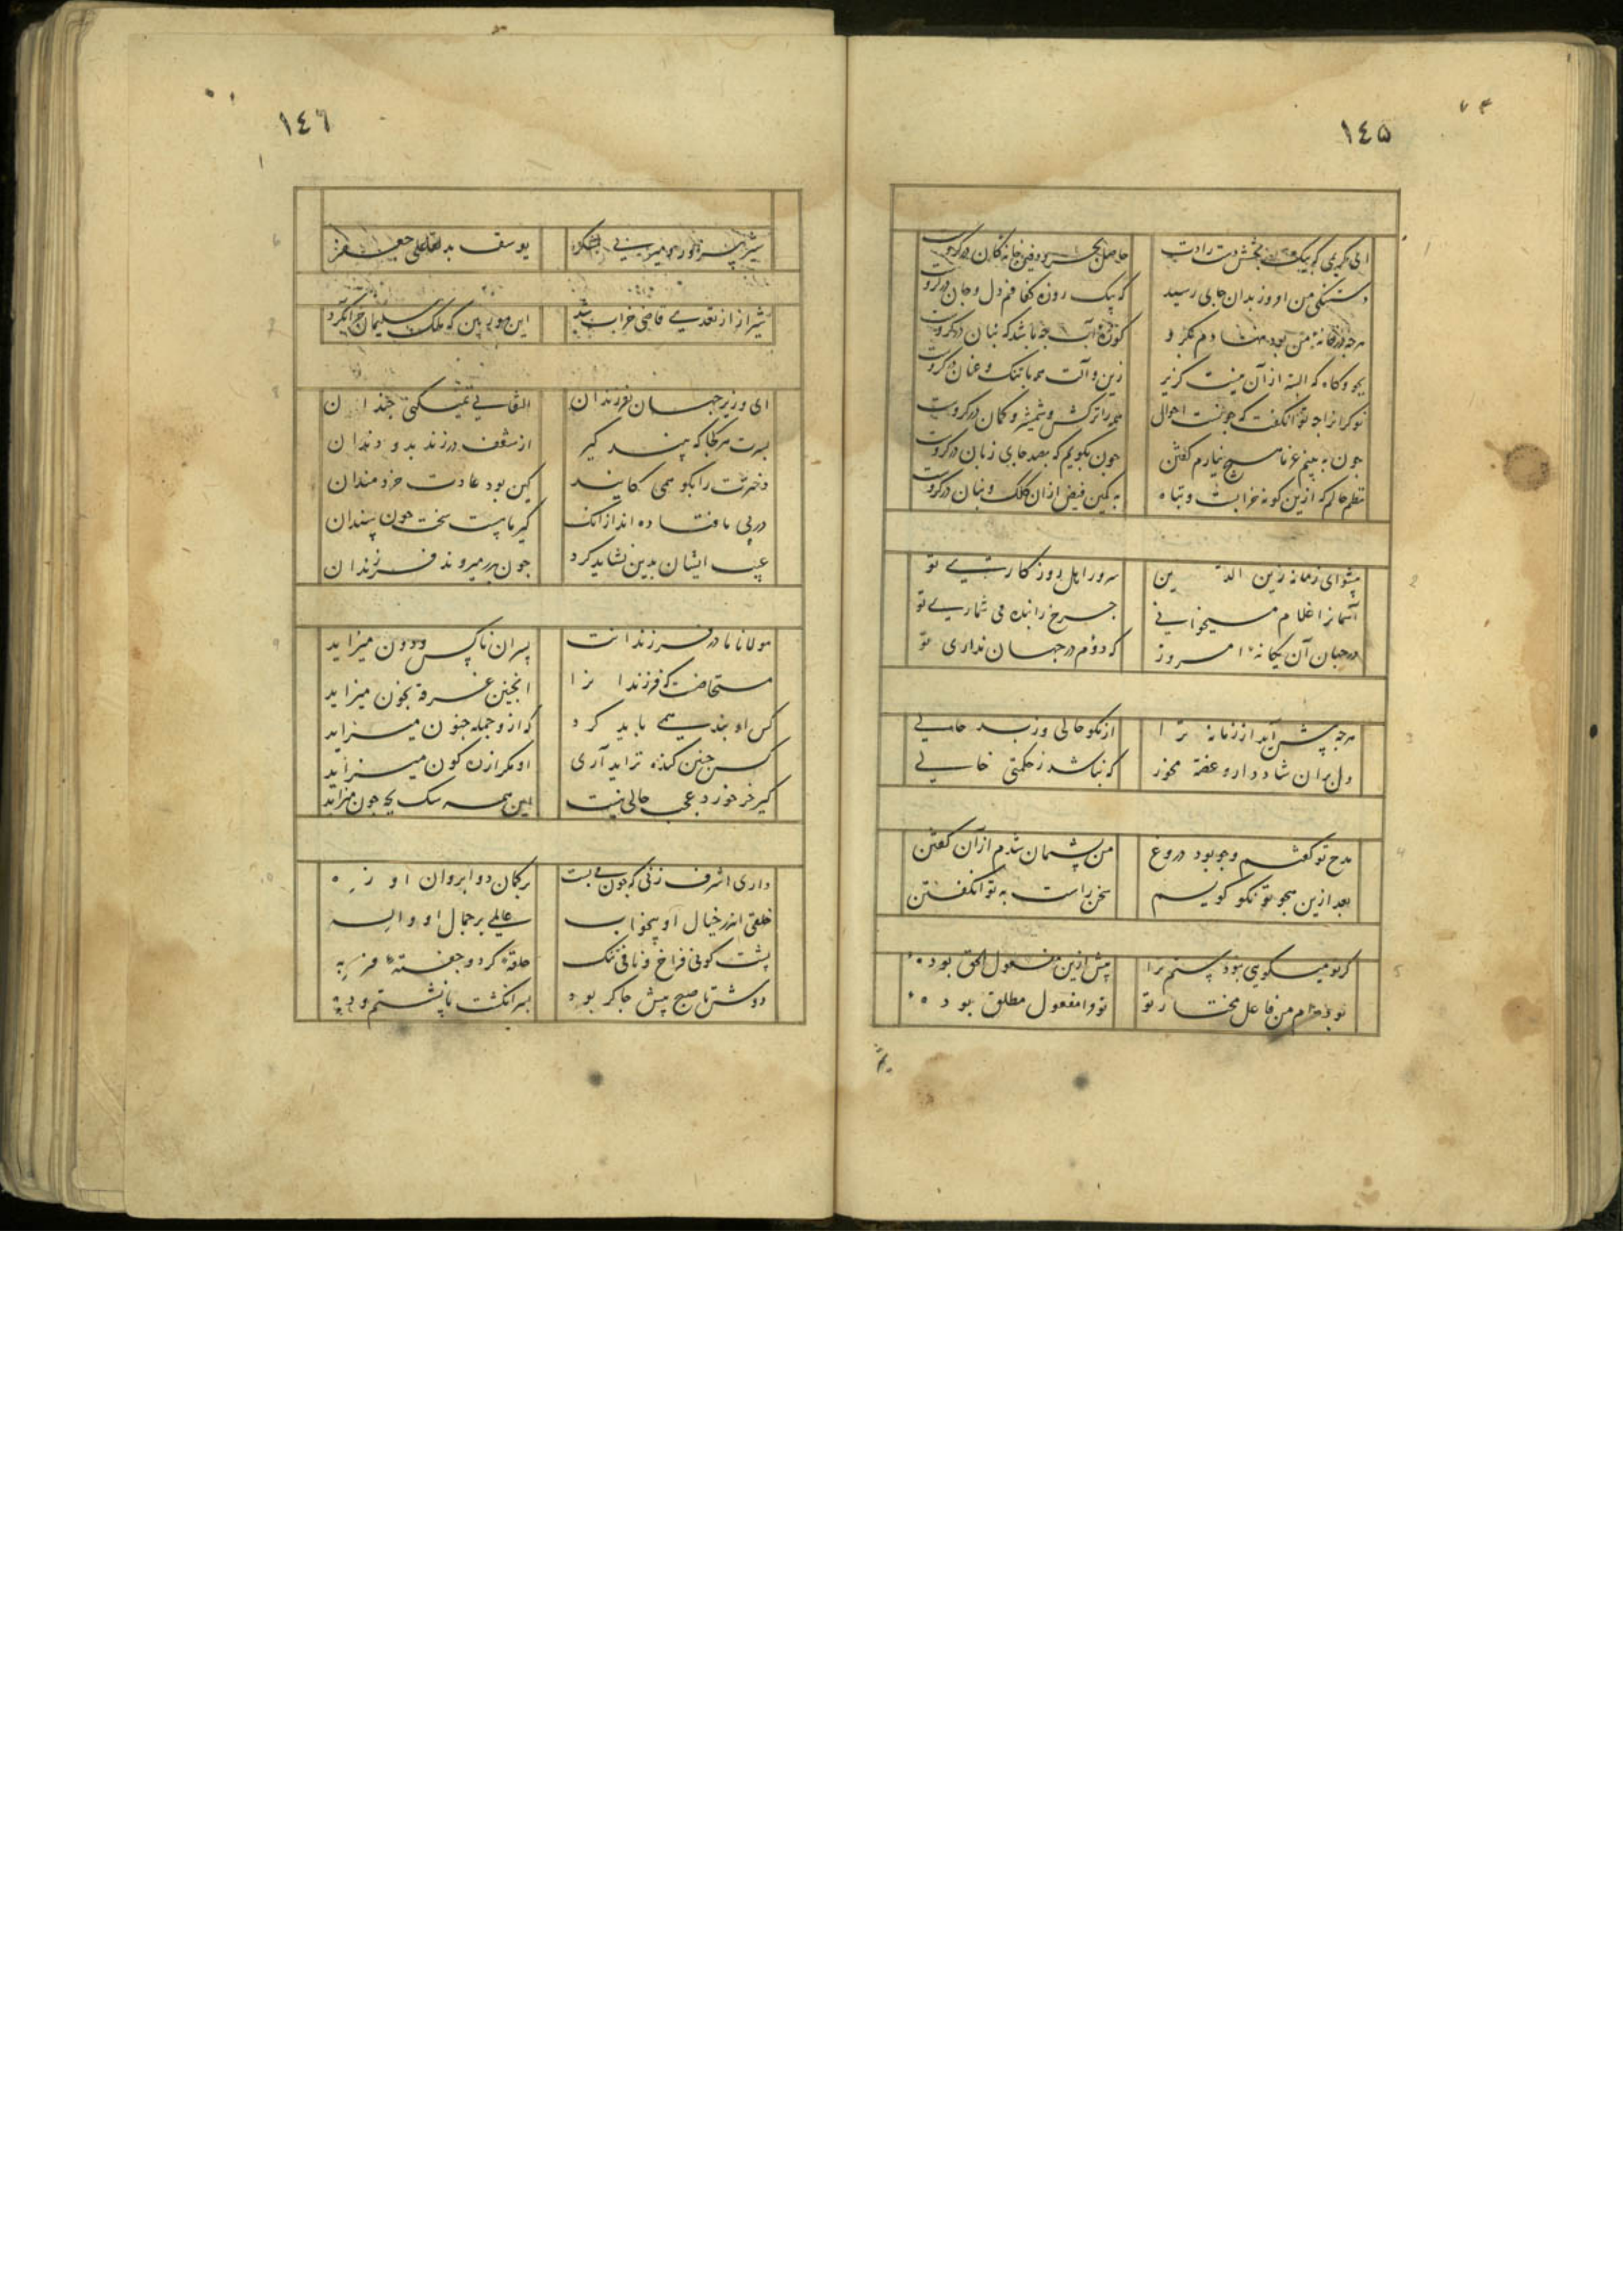 ١٤٥
ای کریمی که بیک بخشش دست رادت
حاصل بحر و دفین خانه کان در گرو است
دستنگی من امروز بدان جای رسید
که بیک روزه کفافم دل و جان در گرو است
هرچه در خانه من بود نهادم گرو
کوزه آب چه باشد که بنان در گرو است
بجو و کاه که البته از آن نیست گزیر
زین و آلت همه با تنگ و عنان در گرو است
نوکرانرا چه توان گفت که چونست احوال
همه را ترکش و شمشیر و کمان در گرو است
چون به بینم غرما هیچ نیارم گفتن
چون بگویم که بصد جای زبان در گرو است
نظم حالم که ازین گونه خرابست و تباه
به کمین فیض از آن کلک و بنان در گرو است
پیشوای زمانه زین الدین
سرور اهل روزگار تویی تو
آسمانرا غلام میخوانی
چرخ را بنده می شماری تو
در جهان آن یگانه امروز
که دوم در جهان نداری تو
هرچه پیش آید از زمانه ترا
از نکو حالی و ز بد حالی
دل بران شاد دار و غصه مخور
که نباشد ز حکمتی خالی
مدح تو گفتم و چو بود دروغ
من پشیمان شدم از آن گفتن
بعد ازین هجو تو نکو گویم
سخن راست به توان گفتن
گر تو میگویی نبود پستم ترا
پیش ازین مفعول الحق بوده
تو بدم من فاعل مختار تو
تو مرا مفعول مطلق بوده
١٤٦
یوسف بد لقای جعفر
شیراز از تعدی قاضی خراب شد
این موبی بین که ملک سلیمان خراب کرد
ای وزیر جهان بفرزندان
التفاتی نمیکنی چندان
پسرت هر کجا که بیند کیر
از شعف در زند بدو دندان
دخترت را بگو همی گایند
کین بود عادت خردمندان
در پی ما فتاده اند از آنک
کیر ما هست سخت چون سندان
عیب ایشان بدین نشاید کرد
چون پدر میروند فرزندان
مولانا مادر فرزندانت
پسران ناکس و دون میزاید
مستحاضست که فرزندانرا
اینچنین غرقه بخون میزاید
کس او بند همی باید کرد
که ازو جمله جنون میزاید
کس چنین گنده نزاید آری
او مگر از ره کون میزاید
کیر خر خورد عجب حالی نیست
این همه سگ بچه چون میزاید
داری اشرف زنی که چون می بست
بر کمان دو ابروان او زه
خلقی اندر خیال او بیخواب
عالمی بر جمال او واله
پشت کونی فراخ و نافی تنگ
حلقه گرد و جفته فربه
دوش تا صبح پیش چاکر بود